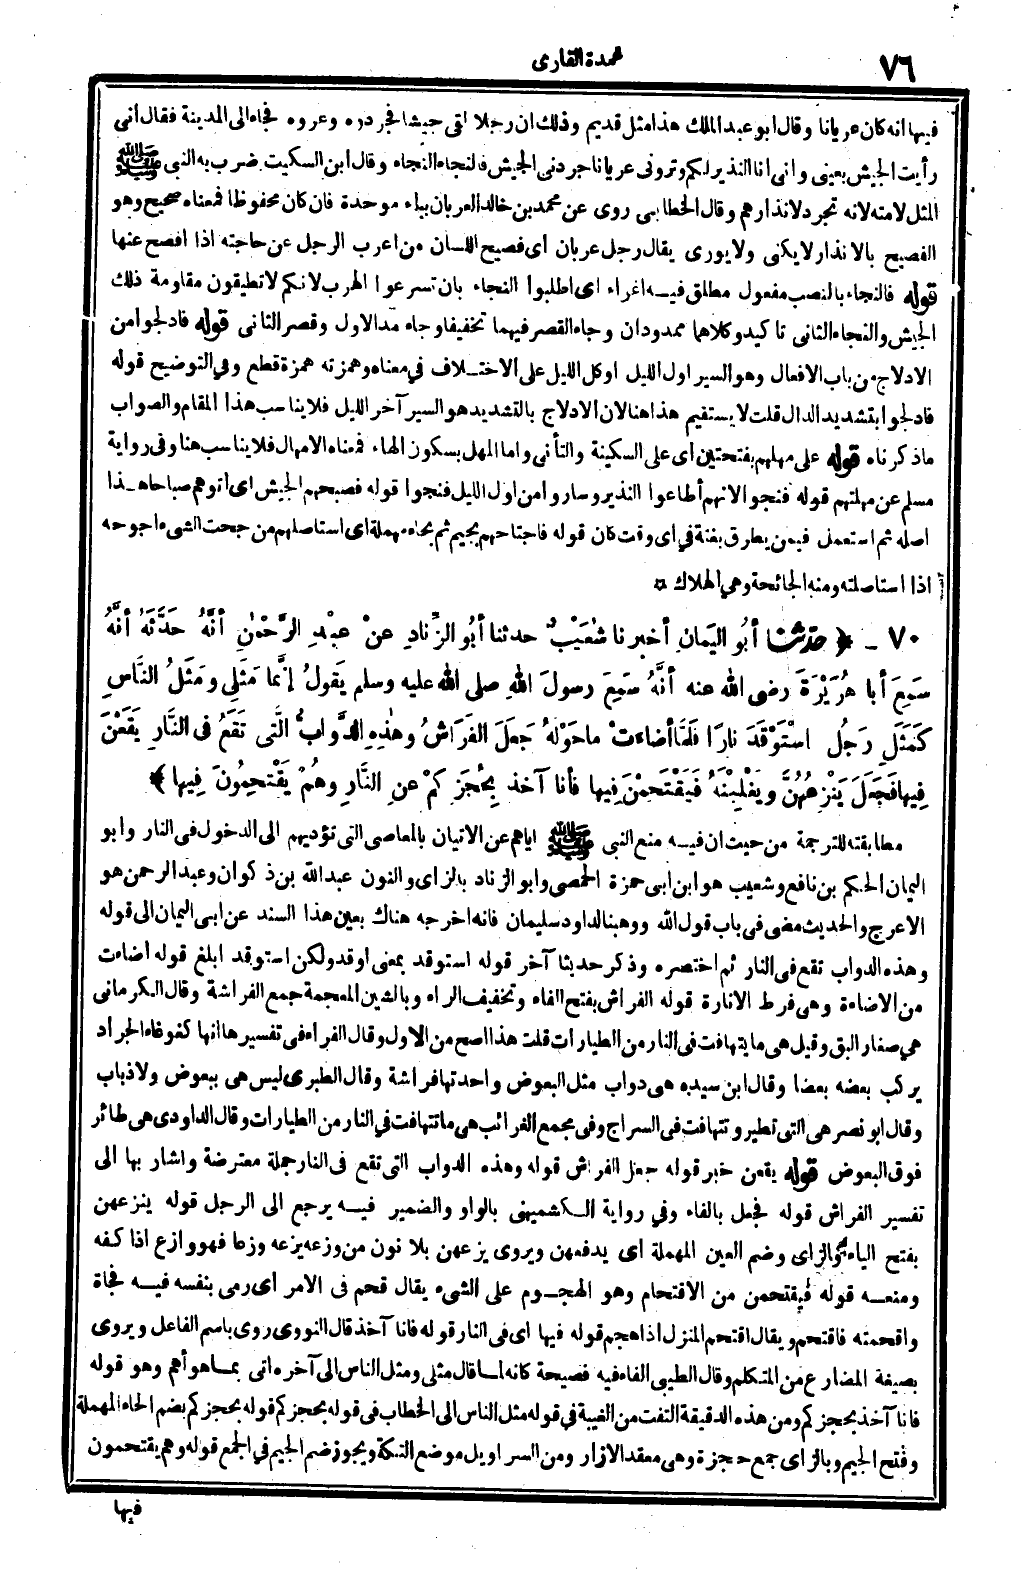 ٧٦
عمدة القارى
فيها انه كان عريانا وقال ابو عبد الملك هذا مثل قديم وذلك ان رجلا لقى جيشا فجردوه وعروه فجاء الى المدينة فقال أنى
رأيت الجيش بعينى وانى انا النذير لكم وترونى عريانا جردنى الجيش فالنجاء النجاء وقال ابن السكيت ضرب به النبى ﷺ
المثل لامته لانه تجرد لانذارهم وقال الخطابى روى عن محمد بن خالد العربان بباء موحدة فان كان محفوظا فمعناه صحيح وهو
الفصيح بالانذار لا يكنى ولا يورى يقال رجل عربان اى فصيح اللسان من اعرب الرجل عن حاجته اذا افصح عنها
قوله فالنجاء بالنصب مفعول مطلق فيه اغراء اى اطلبوا النجاء بان تسرعوا الهرب لانكم لا تطيقون مقاومة ذلك
الجيش والنجاء الثانى تاكيد وكلاهما ممدودان وجاء القصر فيهما تخفيفا وجاء مد الاول وقصر الثانى قوله فادلجوا من
الادلاج من باب الافعال وهو السير اول الليل او كل الليل على الاختلاف في معناه وهمزته همزة قطع وفي التوضيح قوله
فادلجوا بتشديد الدال قلت لا يستقيم هذا هنا لان الادلاج بالتشديد هو السير آخر الليل فلا يناسب هذا المقام والصواب
ماذكرناه قوله على مهلهم بفتحتين اى على السكينة والتأنى واما المهل بسكون الهاء فمعناه الامهال فلا يناسب هنا وفى رواية
مسلم عن مهلتهم قوله فنجوا لانهم أطاعوا النذير وساروا من اول الليل فنجوا قوله فصبحهم الجيش اى اتوهم صباحا هذا
اصله ثم استعمل فيمن يطارق بغتة في اى وقت كان قوله فاجتاحهم بجيم ثم بحاء مهملة اى استاصلهم من جحت الشىء اجوحه
اذا استاصلته ومنه الجائحة وهي الهلاك ¤
٧٠ - ﴿ حدثنا أَبُو اليَمانِ أخبرنا شُعَيْبٌ حدثنا أبُو الزِّنادِ عنْ عبْدِ الرَّحْمٰنِ أنَّهُ حَدَّثَهُ أنَّهُ
سَمِعَ أبا هُرَيْرَةَ رضى الله عنه أنَّهُ سَمِعَ رسولَ اللهِ صلى الله عليه وسلم يَقولُ إنَّما مَثَلِى ومَثَلُ النَّاسِ
كَمَثَلِ رَجُلٍ اسْتَوْقَدَ نارًا فلَمَّا أضاءَتْ ماحَوْلَهُ جَعَلَ الفَرَاشُ وهٰذِهِ الدَّوابُّ الَّتى تَقَعُ فى النَّارِ يَقَعْنَ
فِيها فَجَعَلَ يَنْزِعُهُنَّ ويَغْلِبْنَهُ فَيَقْتَحِمْنَ فِيها فأنا آخذ بِحُجَزِكمْ عنِ النَّارِ وهُمْ يَقْتَحِمُونَ فِيها ﴾
مطابقته للترجمة من حيث ان فيه منع النبى ﷺ اياهم عن الاتيان بالمعاصى التى تؤديهم الى الدخول فى النار وابو
اليمان الحكم بن نافع وشعيب هو ابن ابى حمزة الحمصى وابو الزناد بالزاى والنون عبدالله بن ذكوان وعبد الرحمن هو
الاعرج والحديث مضى فى باب قول الله ووهبنا لداود سليمان فانه اخرجه هناك بعين هذا السند عن ابى اليمان الى قوله
وهذه الدواب تقع فى النار ثم اختصره وذكر حديثا آخر قوله استوقد بمعنى اوقد ولكن استوقد ابلغ قوله اضاءت
من الاضاءة وهى فرط الانارة قوله الفراش بفتح الفاء وتخفيف الراء وبالشين المعجمة جمع الفراشة وقال الكرمانى
هي صغار البق وقيل هى مايتهافت فى النار من الطيارات قلت هذا اصح من الاول وقال الفراء فى تفسيرها انها كغوغاء الجراد
يركب بعضه بعضا وقال ابن سيده هى دواب مثل البعوض واحدتها فراشة وقال الطبرى ليس هى ببعوض ولا ذباب
وقال ابو نصر هى التى تطير وتتهافت فى السراج وفى مجمع الغرائب هى ماتتهافت في النار من الطيارات وقال الداودى هى طائر
فوق البعوض قوله يقعن خبر قوله جعل الفراش قوله وهذه الدواب التى تقع فى النار جملة معترضة واشار بها الى
تفسير الفراش قوله فجعل بالفاء وفي رواية الكشميهنى بالواو والضمير فيه يرجع الى الرجل قوله ينزعهن
بفتح الياء والزاى وضم العين المهملة اى يدفعهن ويروى يزعهن بلا نون من وزعه يزعه وزعا فهو وازع اذا كفه
ومنعه قوله فيقتحمن من الاقتحام وهو الهجوم على الشىء يقال قحم فى الامر اى رمى بنفسه فيه فجاة
واقحمته فاقتحم ويقال اقتحم المنزل اذا هجم قوله فيها اى فى النار قوله فانا آخذ قال النووى روى باسم الفاعل ويروى
بصيغة المضارع من المتكلم وقال الطيبى الفاء فيه فصيحة كانه لما قال مثلى ومثل الناس الى آخره اتى بما هو أهم وهو قوله
فانا آخذ بحجزكم ومن هذه الدقيقة التفت من الغيبة في قوله مثل الناس الى الخطاب فى قوله بحجزكم قوله بحجزكم بضم الحاء المهملة
وفتح الجيم وبالزاى جمع حجزة وهى معقد الازار ومن السراويل موضع التكة ويجوز ضم الجيم في الجمع قوله وهم يقتحمون
فيها